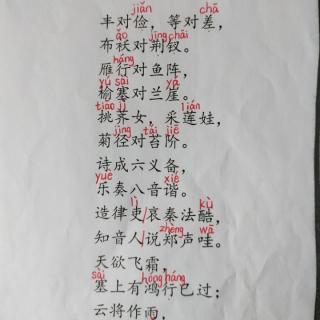 jiǎn chā
丰对俭，等对差，
ǎo jīng chāi
布袄对荆钗。
háng
雁行对鱼阵，
yú sài yá
榆塞对兰崖。
tiāo jì lián
挑荠女，采莲娃，
jìng tái jiē
菊径对苔阶。
诗成六义备，
yuè xié
乐奏八音谐。
lì kù
造律吏/哀秦法酷，
zhèng wā
知音人/说郑声哇。
天欲飞霜，
sài hóng háng
塞上有鸿行已过；
云将作雨，